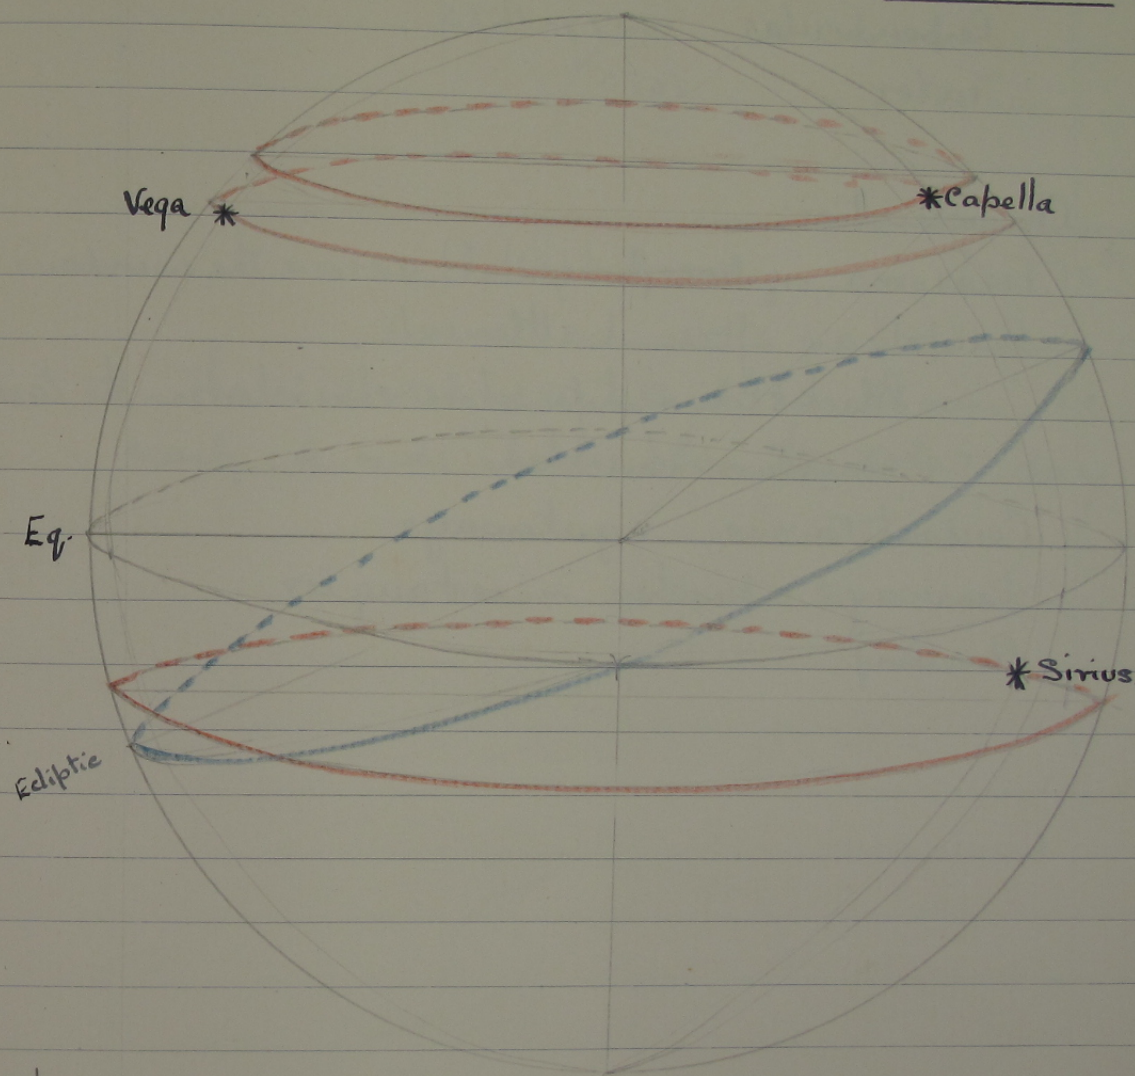 Vega
Capella
Eq.
Sirius
Ecliptic